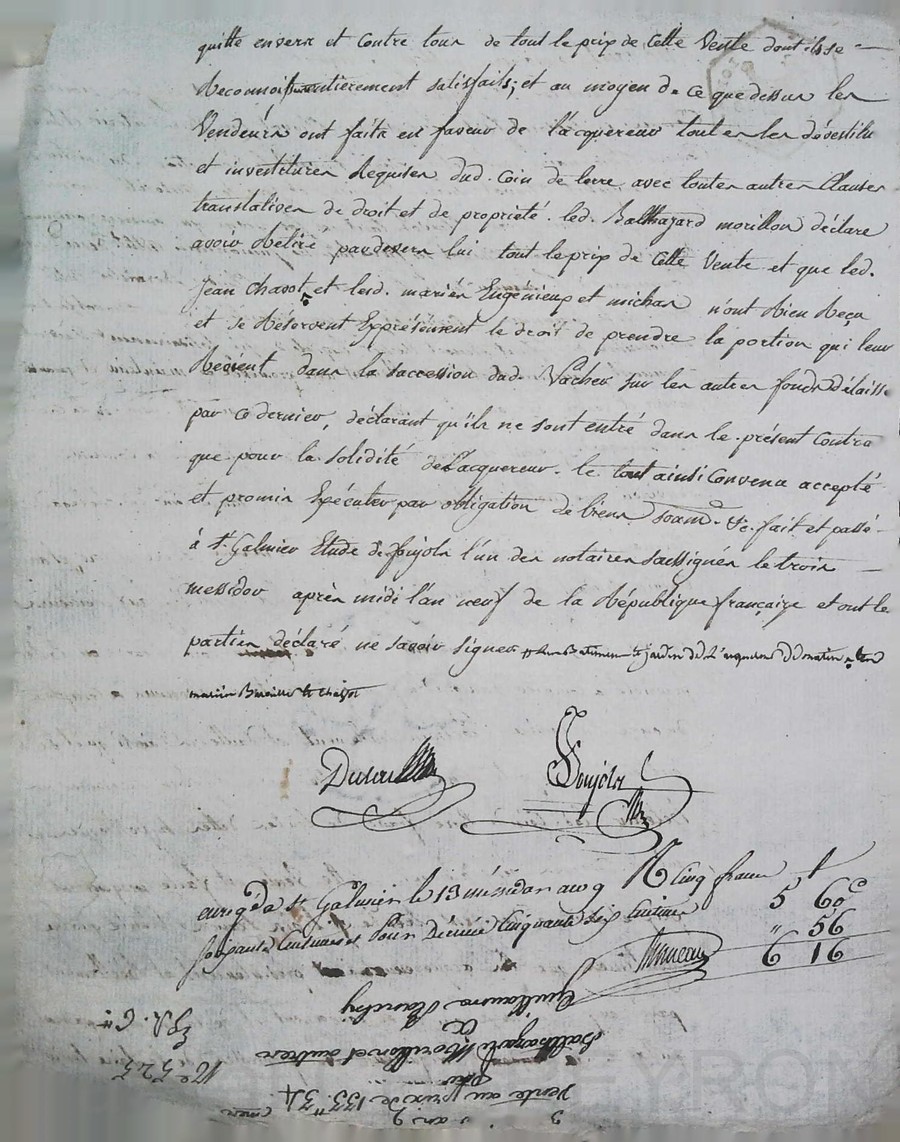 quitte envers et Contre tous de tout le prix de Cette Vente dont ils se
Reconnoissent entierement satisfaits; et au moyen de Ce que dessus les
Vendeurs ont faits en faveur de l'acquereur toutes les dévestitu
et investitures Requises dud. Coin de terre avec toutes autres Clauses
translatives de droit et de propriété. led. Balthazard morillon déclare
avoir Retiré pardevers lui tout le prix de Cette Vente et que led.
Jean Chavot et lesd. mariés Engénieux et michas n'ont Rien Reçu
et se Réservent Expréssément le droit de prendre la portion qui leur
Revient dans la succession dud. Vacher sur les autres fonds Délaissé
par ce dernier, déclarant qu'ils ne sont entré dans le présent Contra
que pour la solidité de L'acquereur. le tout ainsi Convenu accepté
et promis Exécuter par obligation de biens soum. &c. fait et passé
à St. Galmier Etude de Poujols l'un des notaires soussignés le trois
messidor après midi l'an neuf de la République française et ont les
parties déclaré ne savoir signer
mariés
Poujols
enreg. à St Galmier le 13 messidor an 9 Cinq francs 5 60c
soixante Centimes et Pour Décime Cinquante Six Centimes " 56
6 16
Guillaume
Balthazard Morillon et autres
Vente au prix de 133 34
3 an 9